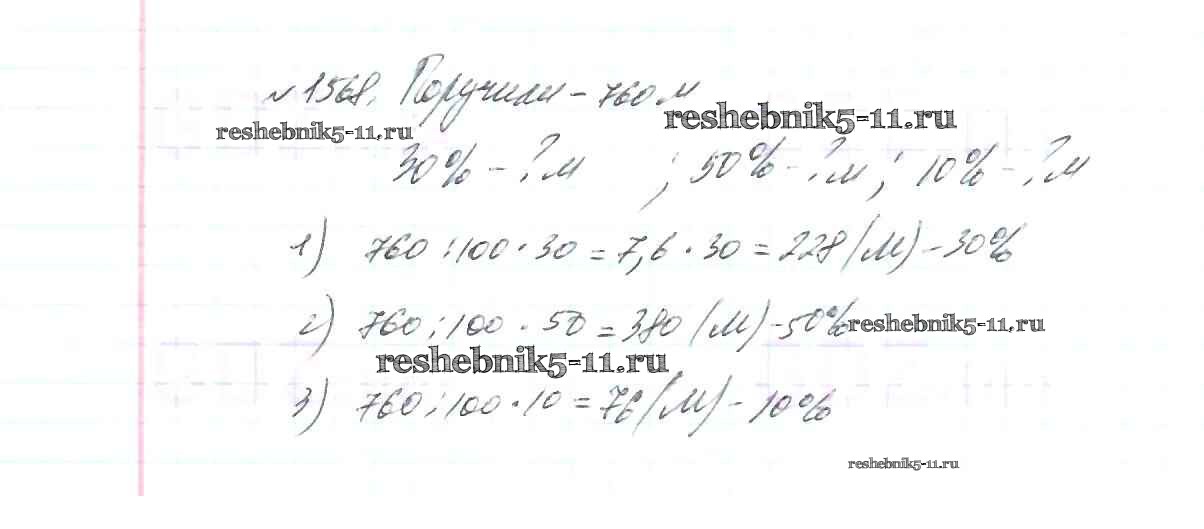 №1568. Поручили – 760 м
reshebnik5-11.ru reshebnik5-11.ru
30% - ? м ; 50% - ? м ; 10% - ? м
1) 760 : 100 · 30 = 7,6 · 30 = 228 (м) – 30%
2) 760 : 100 · 50 = 380 (м) – 50% reshebnik5-11.ru
reshebnik5-11.ru
3) 760 : 100 · 10 = 76 (м) – 10%
reshebnik5-11.ru